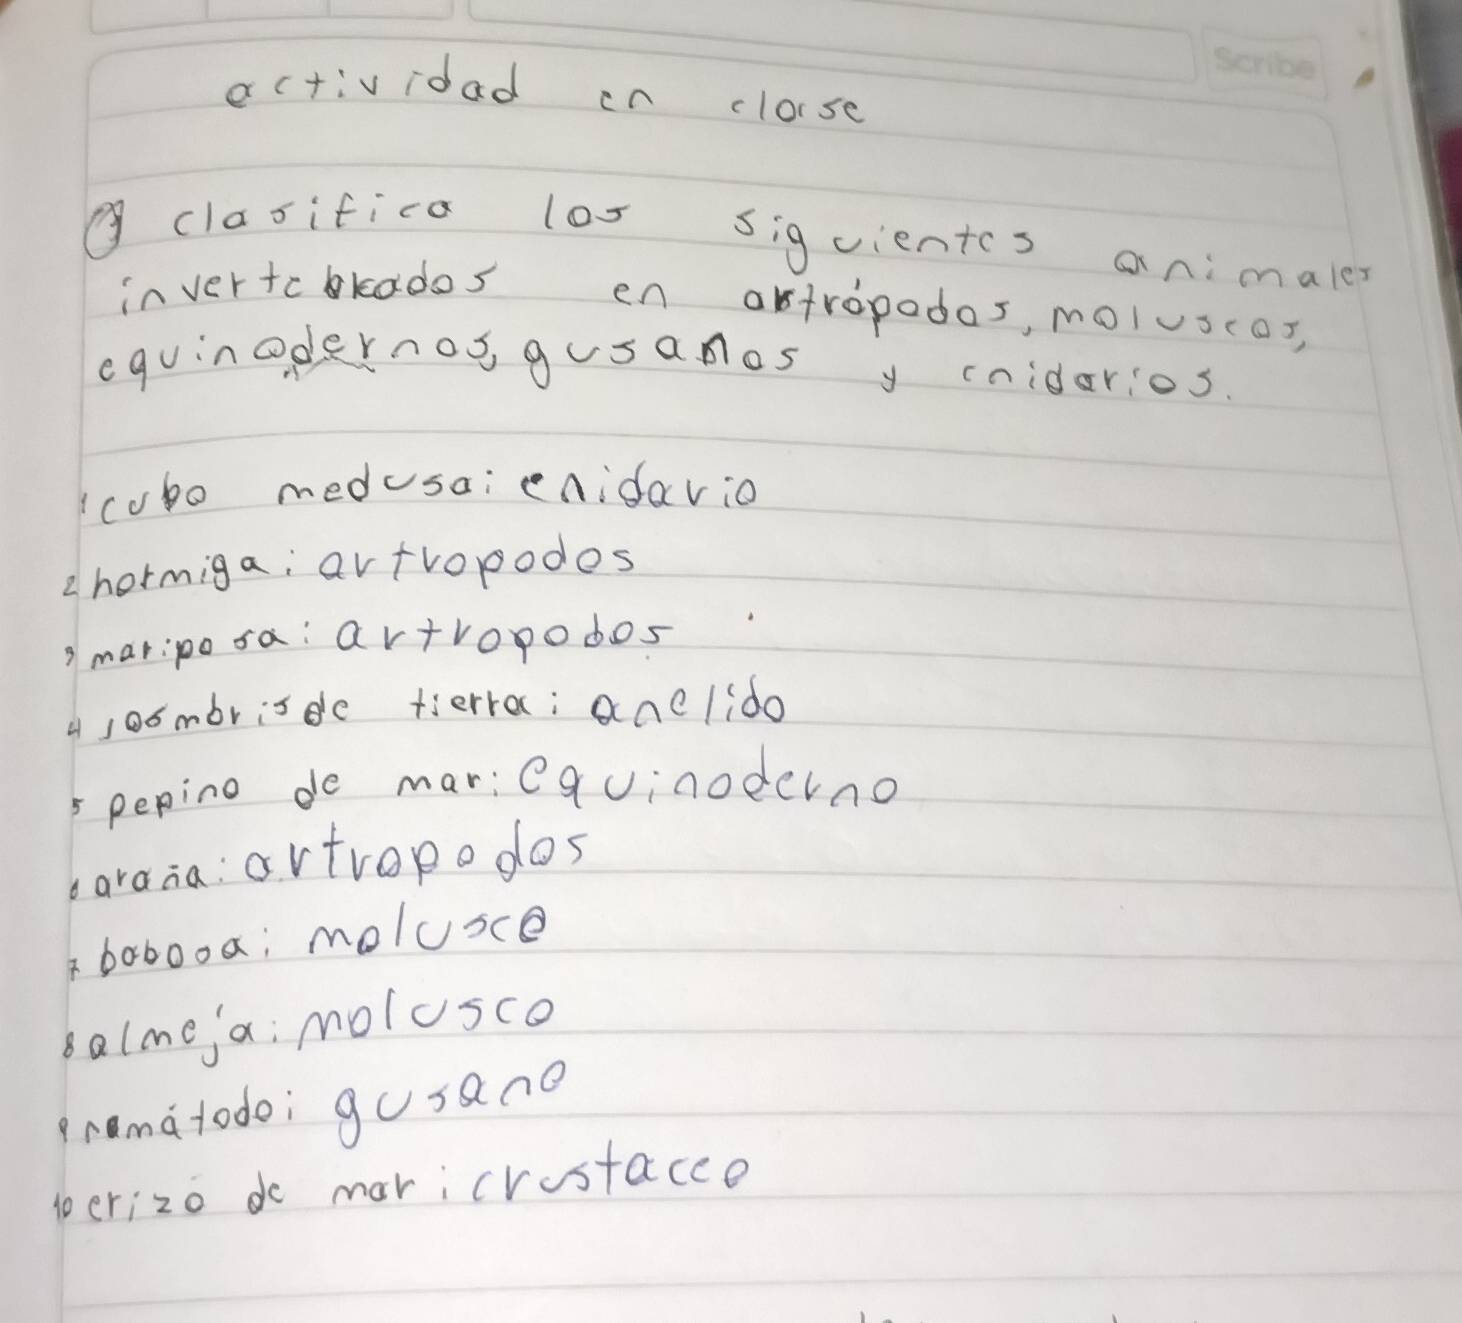 Scribe
actividad en clase
① clasifica los siguientes animales
invertebrados en artrópodos, moluscos,
equinodernos, gusanos y cnidarios.
1 cubo medusa: cnidario
2 hormiga: artropodos
3 mariposa: artropodos
4 losmbris de tierra: anelido
5 pepino de mar: equinoderno
6 araña: artropodos
7 babosa: molusco
8 almeja: molusco
9 nemátodo: gusano
10 erizo de mar: crustaceo